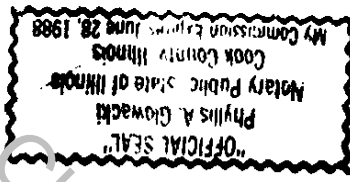 "OFFICIAL SEAL"
Phyllis A. Glowacki
Notary Public State of Illinois
Cook County Illinois
My Commission Expires June 28, 1988